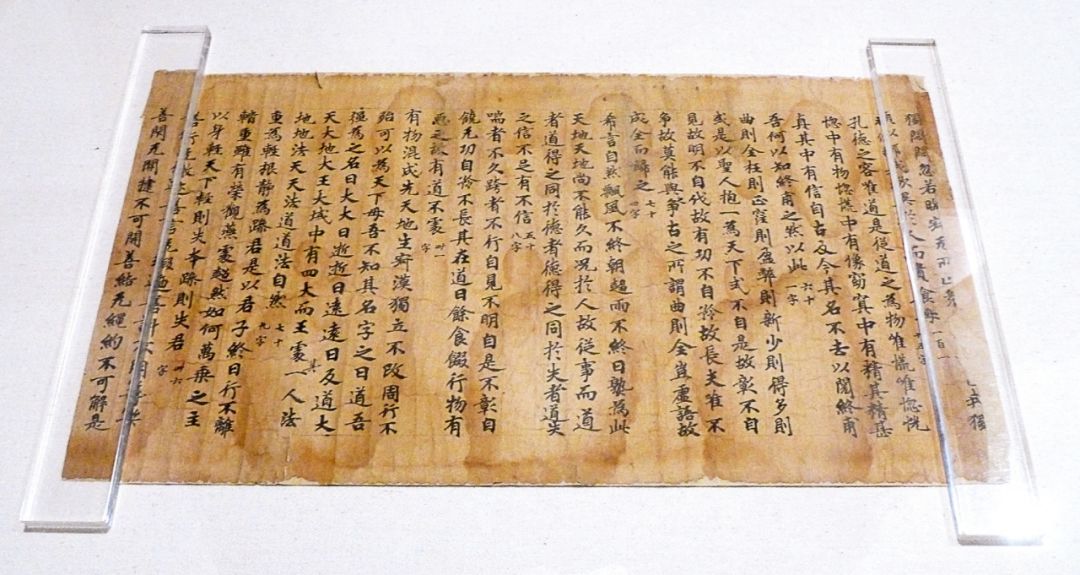 我獨
獨悶悶忽若晦寂无所止衆
欲異於人而貴食母 一百一十五字
孔德之容唯道是從道之為物唯慌唯惚慌
惚中有物惚慌中有像窈冥中有精其精甚
真其中有信自古及今其名不去以閱終甫
吾何以知終甫之然以此 六十一字
曲則全枉則正窪則盈弊則新少則得多則
或是以聖人抱一為天下式不自是故彰不自
見故明不自伐故有功不自矜故長夫唯不
爭故莫能與爭古之所謂曲則全豈虛語故
成全而歸之 七十四字
希言自然飄風不終朝趍雨不終日孰為此
天地天地尚不能久而況於人故從事而道
者道得之同於德者德得之同於失者道失
之信不足有不信 五十八字
喘者不久跨者不行自見不明自是不彰自
饒无功自矜不長其在道曰餘食餟行物有
惡之故有道不處 卌一字
有物混成先天地生寂漠獨立不改周行不
殆可以為天下母吾不知其名字之曰道吾
強為之名曰大大曰逝逝曰遠遠曰反道大
天大地大王大域中有四大而王處一人法
地地法天天法道道法自然 七十九字
重為輕根靜為躁君是以君子終日行不離
輜重雖有榮觀燕處超然如何萬乘之主
以身輕天下輕則失本躁則失君 卌六字
善行无
善閉无關揵不可開善結无繩約不可解是